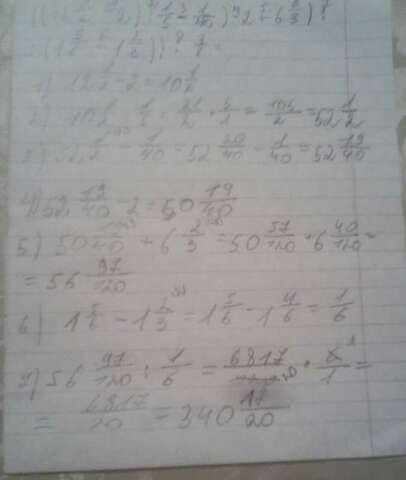 1) 12 1/2 - 2 = 10 1/2
2) 10 1/2 : 1/5 = 21/2 · 5/1 = 105/2 = 52 1/2
3) 52 1/2 - 1/40 = 52 20/40 - 1/40 = 52 19/40
4) 52 19/40 - 2 = 50 19/40
5) 50 19/40 + 6 2/3 = 50 57/120 + 6 40/120 =
= 56 97/120
6) 1 5/6 - 1 2/3 = 1 5/6 - 1 4/6 = 1/6
7) 56 97/120 : 1/6 = 6817/ · 6/1 =
= 6817/20 = 340 17/20